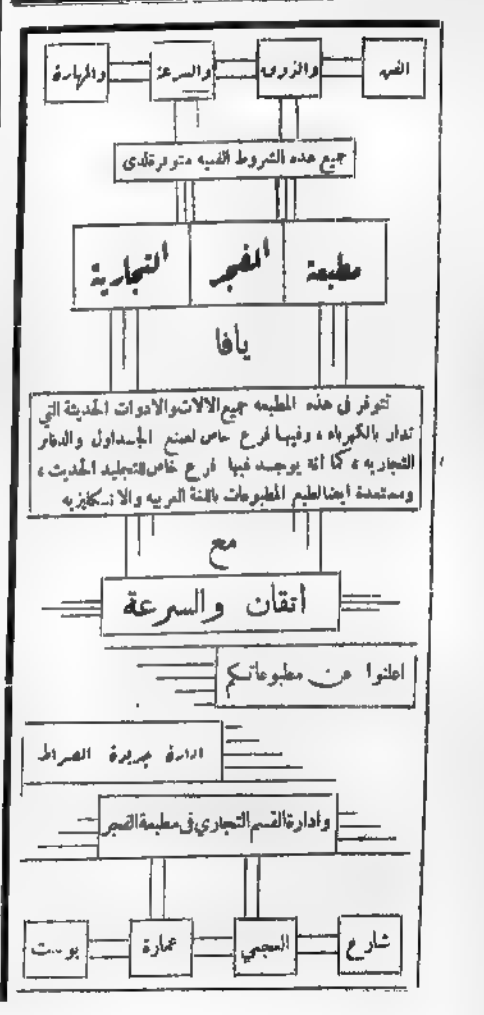 الفن والذوق والسرعة والمهارة
جميع هذه الشروط الفنيه متوفرة لدى
مطبعة الفجر التجارية
يافا
تتوفر في هذه المطبعه جميع الالات والادوات الحديثة التي
تدار بالكهرباء ، وفيها فرع خاص لصنع الجداول والدفاتر
التجاريه ، كما انه يوجد فيها فرع خاص للتجليد الحديث ،
ومستعدة ايضا لطبع المطبوعات باللغة العربيه والانكليزيه
مع
اتقان والسرعة
اعلنوا عن مطبوعاتكم
ادارة جريدة الصراط
وادارة القسم التجاري في مطبعة الفجر
شارع العجمي عمارة بوست